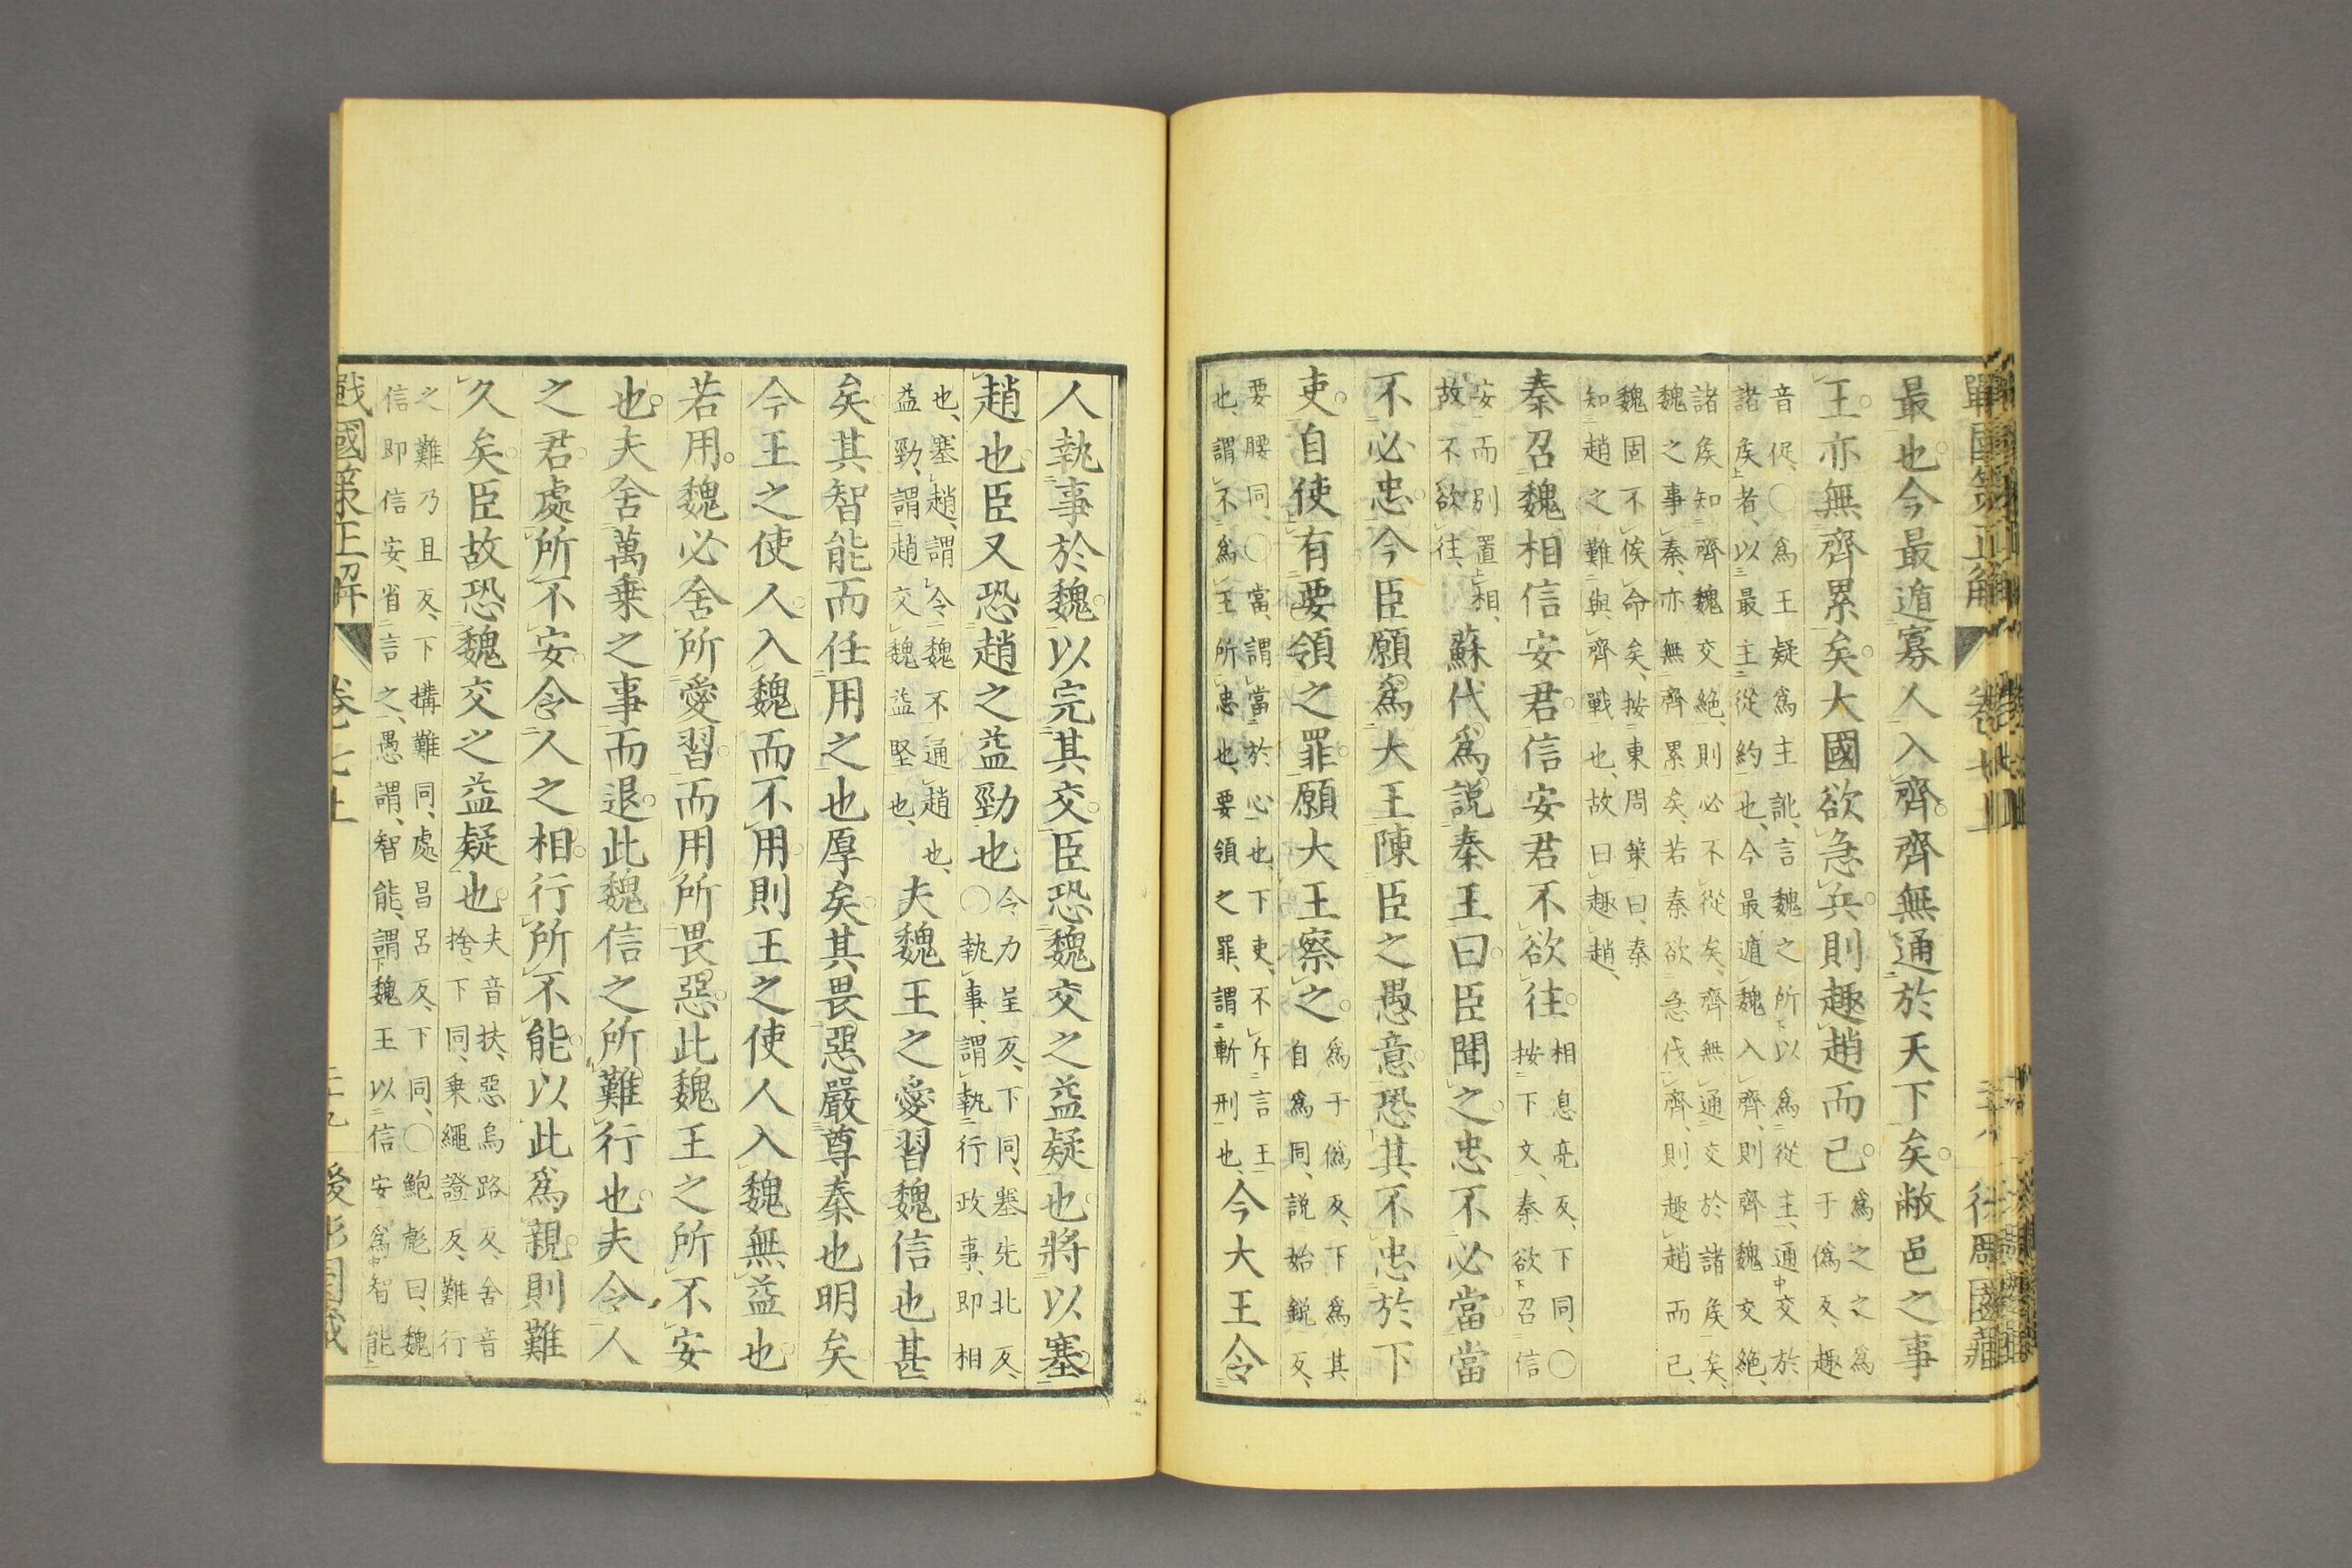 戰國策正解 卷七上 三十八
最也今最遁寡人入齊齊無通於天下矣敝邑之事
王亦無齊累矣大國欲急兵則趣趙而已爲之之爲于僞反趣
音促○爲王疑爲主訛言魏之所以爲從主通交於
諸矦者以最主從約也今最遁魏入齊則齊魏交絶
諸矦知齊魏交絶則必不從矣齊無通交於諸矦矣
魏之事秦亦無齊累矣若秦欲急伐齊則趣趙而已
魏固不俟命矣按東周策曰秦
知趙之難與齊戰也故曰趣趙
秦召魏相信安君信安君不欲往相息亮反下同○按下文秦欲召信
安而別置相故不欲往蘇代爲說秦王曰臣聞之忠不必當當
不必忠今臣願爲大王陳臣之愚意恐其不忠於下
吏自使有要領之罪願大王察之爲于僞反下爲其自爲同説始鋭反
要腰同○當謂當於心也下吏不斥言王
也謂不爲王所忠也要領之罪謂斬刑也今大王令
人執事於魏以完其交臣恐魏交之益疑也將以塞
趙也臣又恐趙之益勁也令力呈反下同塞先北反○執事謂執行政事即相
也塞趙謂令魏不通趙也益勁謂趙交魏益堅也夫魏王之愛習魏信也甚
矣其智能而任用之也厚矣其畏惡嚴尊秦也明矣
今王之使人入魏而不用則王之使人入魏無益也
若用魏必舍所愛習而用所畏惡此魏王之所不安
也夫舍萬乗之事而退此魏信之所難行也夫令人
之君處所不安令人之相行所不能以此爲親則難
久矣臣故恐魏交之益疑也夫音扶惡烏路反舍音捨下同乗繩證反難行
之難乃旦反下構難同處昌呂反下同○鮑彪曰魏
信即信安省言之愚謂智能謂魏王以信安爲智能
戰國策正解 卷七上